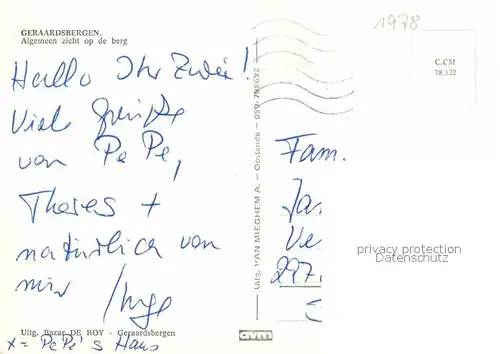 GERAARDSBERGEN.
Algemeen zicht op de berg
1978
C.CM
78.122
Hallo Ihr Zwei!
Viele Grüße
von Pe Pe,
Theres +
natürlich von
mir Inge
Uitg. VAN MIEGHEM A. - Oostende - 059-708622
Fam.
Ja
Ve
297.
privacy protection
Datenschutz
Uitg. Bazar DE ROY - Geraardsbergen
x = PePe's Haus